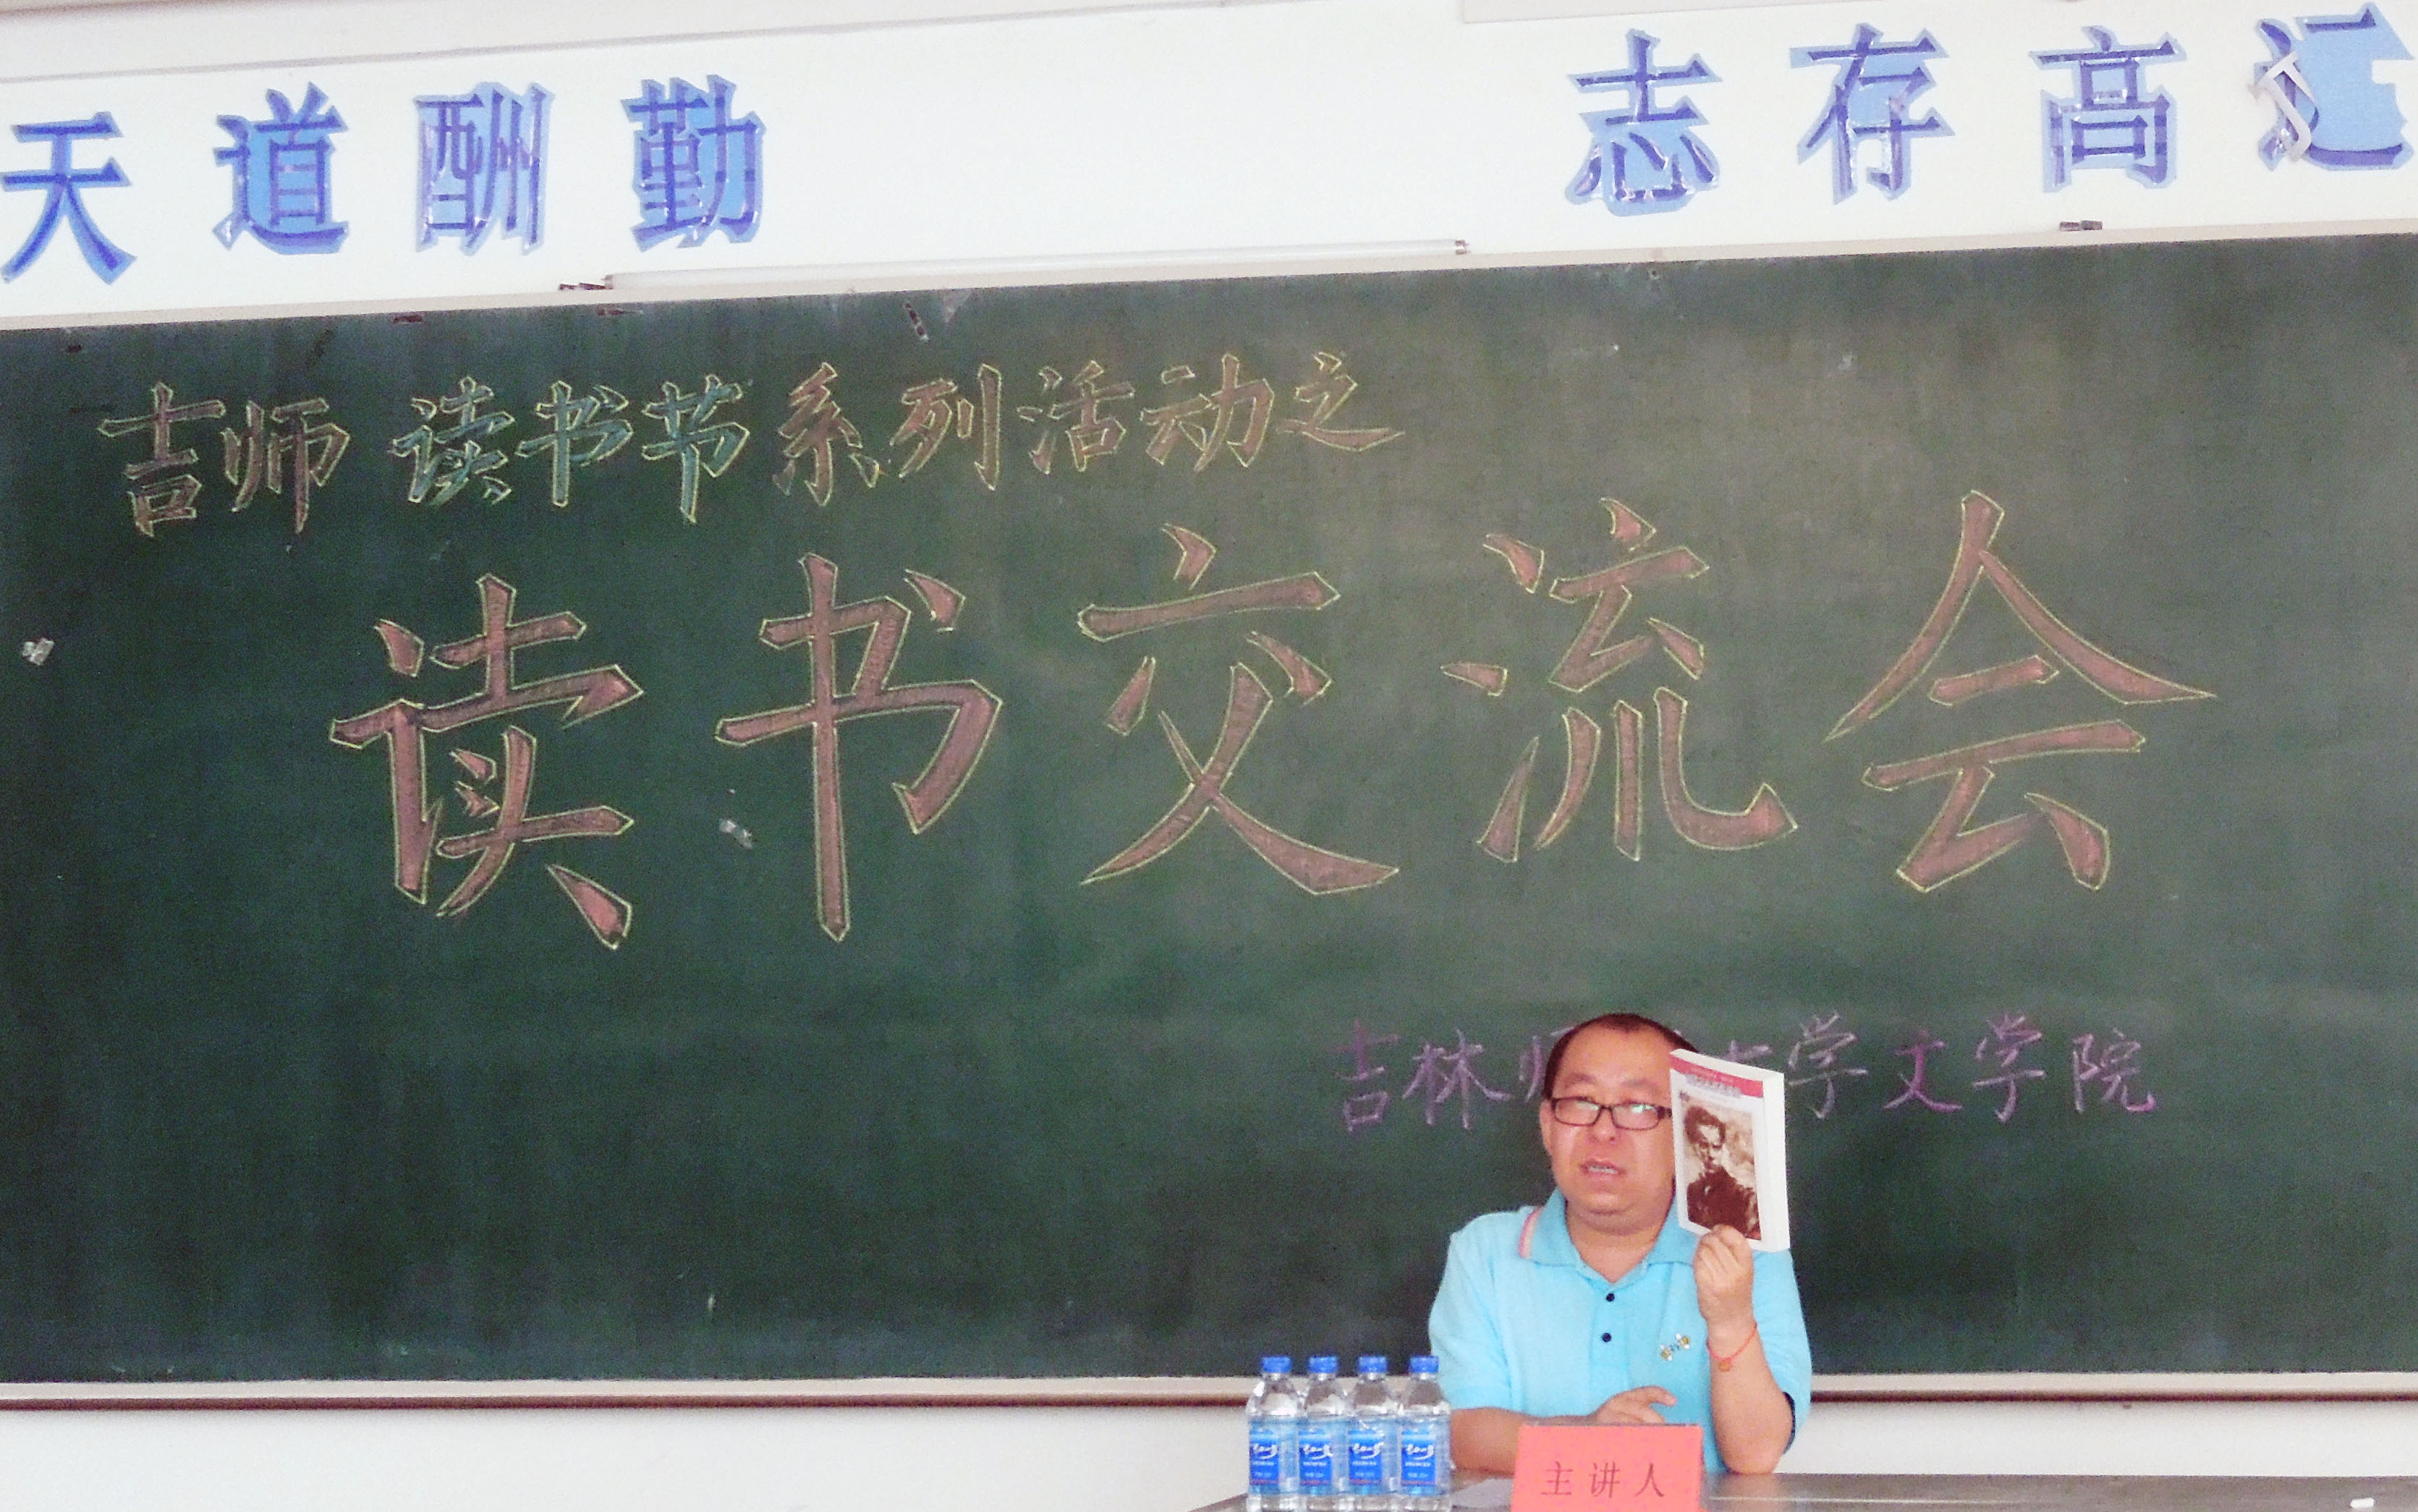 天道酬勤
志存高远
吉师读书节系列活动之
读书交流会
吉林师大学文学院
主讲人